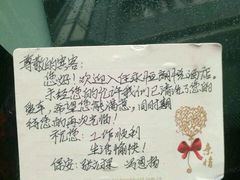 尊敬的宾客:
您好!欢迎入住永恒朗悦酒店。
未经您的允许我们已清洗了您的
爱车,希望您能满意,同时期
待您的再次光临!
祝您:工作顺利
生活愉快!
保安: